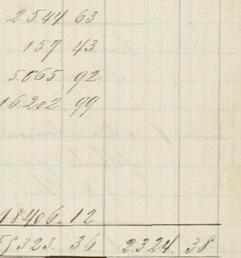 2544 63
157 43
5.065 92
16.202 99
18406.12
323. 36 2.324 38